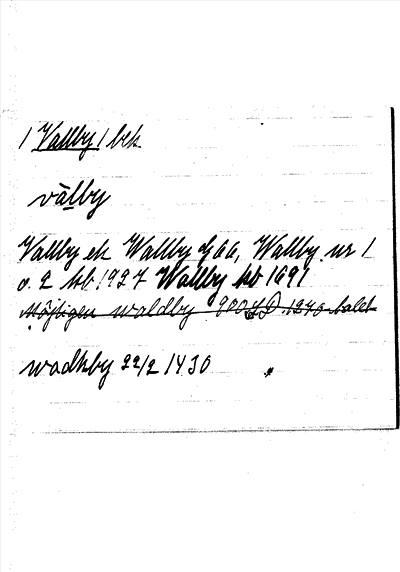 / Vallby / bek
vàlby
Vallby ek Wallby gf 66, Wallby nr 1
o. 2 kb 1927 Wallby kb 1691
Möjligen waldby 900 SD 1270-talet
wadhby 22/2 1430